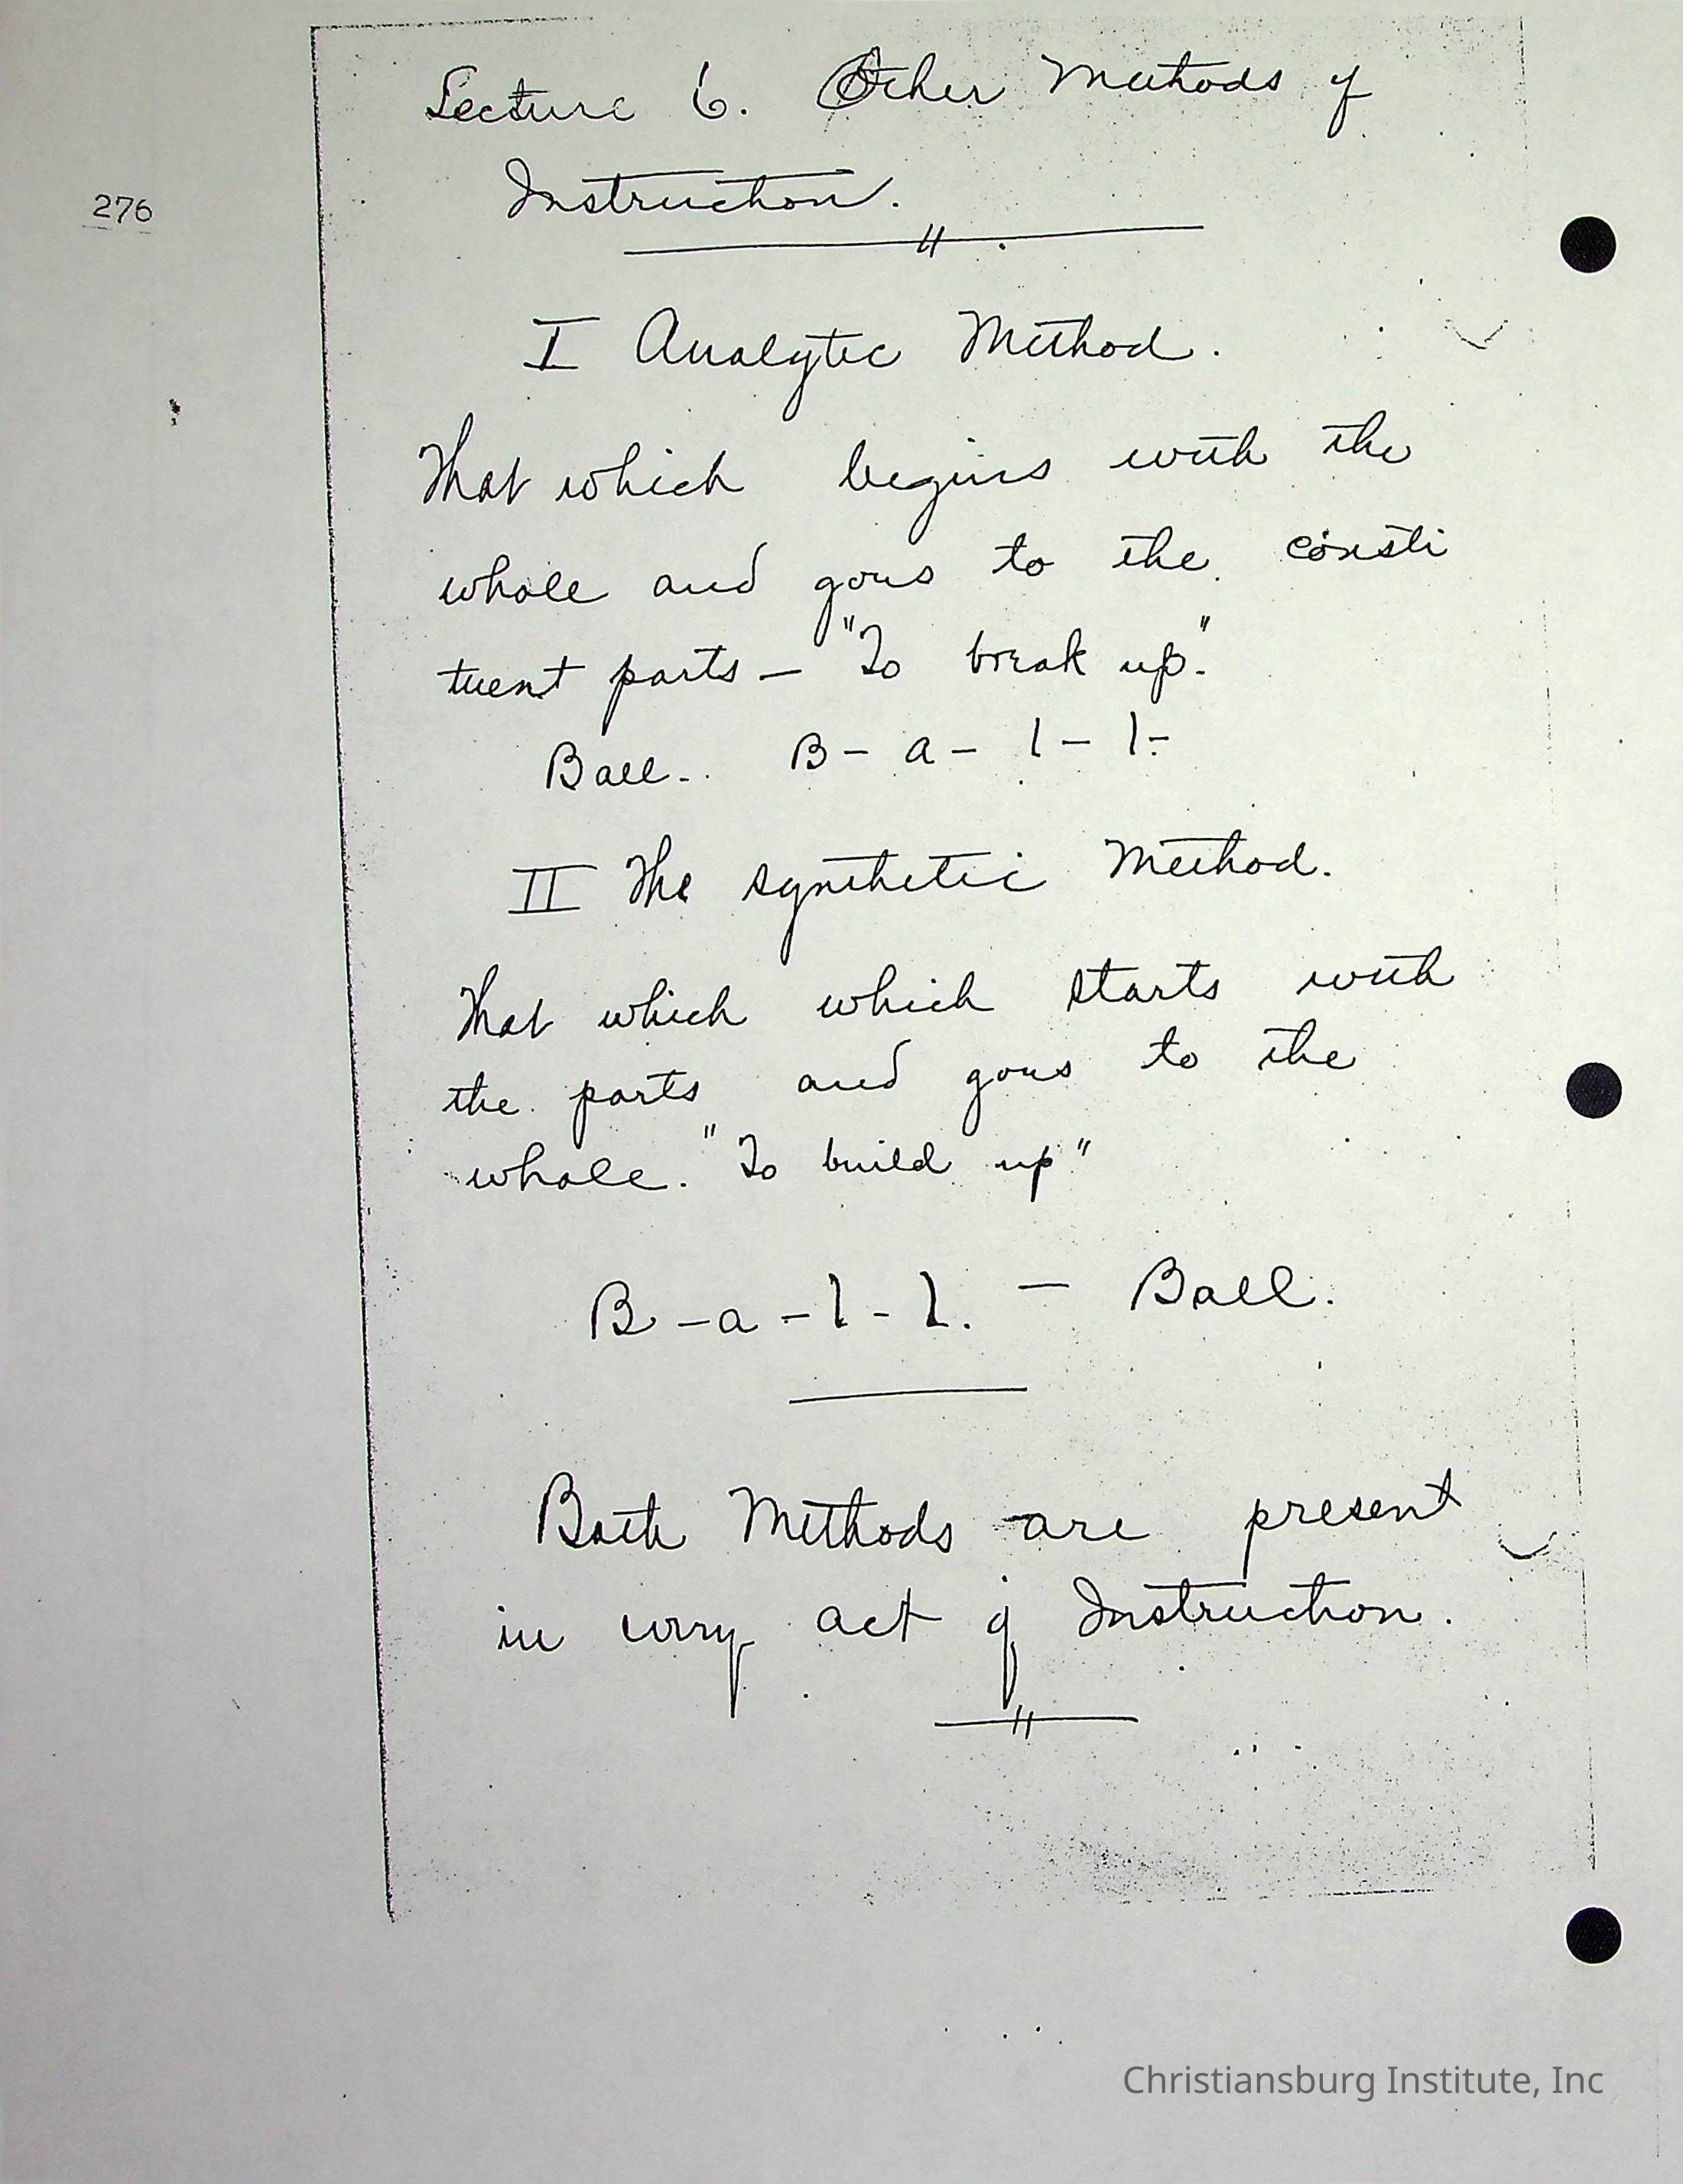 Lecture 6. Other Methods of
Instruction.
276
I Analytic Method.
That which begins with the
whole and goes to the consti
tuent parts — "To break up."
Ball - B - a - l - l -
II The synthetic Method.
That which which starts with
the parts and goes to the
whole. "To build up"
B - a - l - l. — Ball.
Both Methods are present
in every act of Instruction.
Christiansburg Institute, Inc